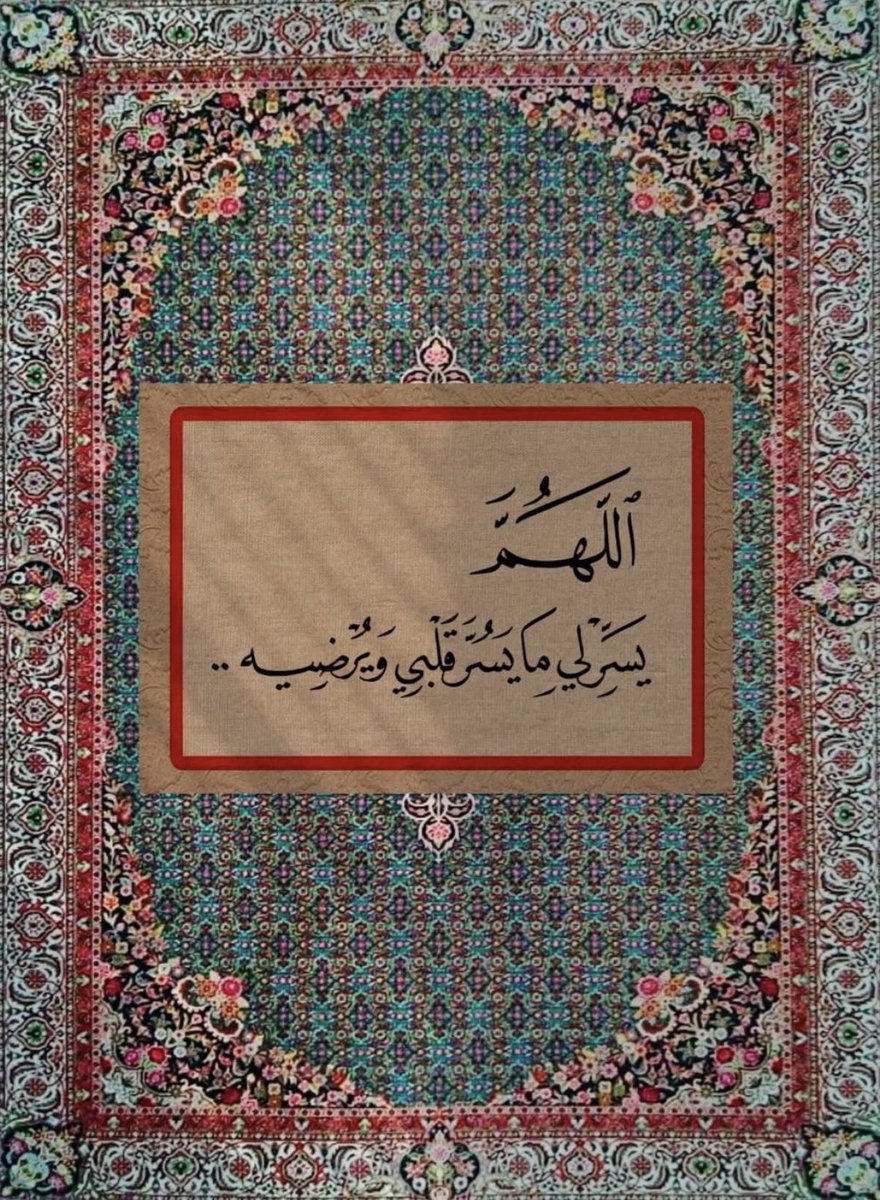 اللَّهُمَّ
يَسِّرْ لِي مِا يَسُرَّ قَلْبِي وَيُرْضِيه ..